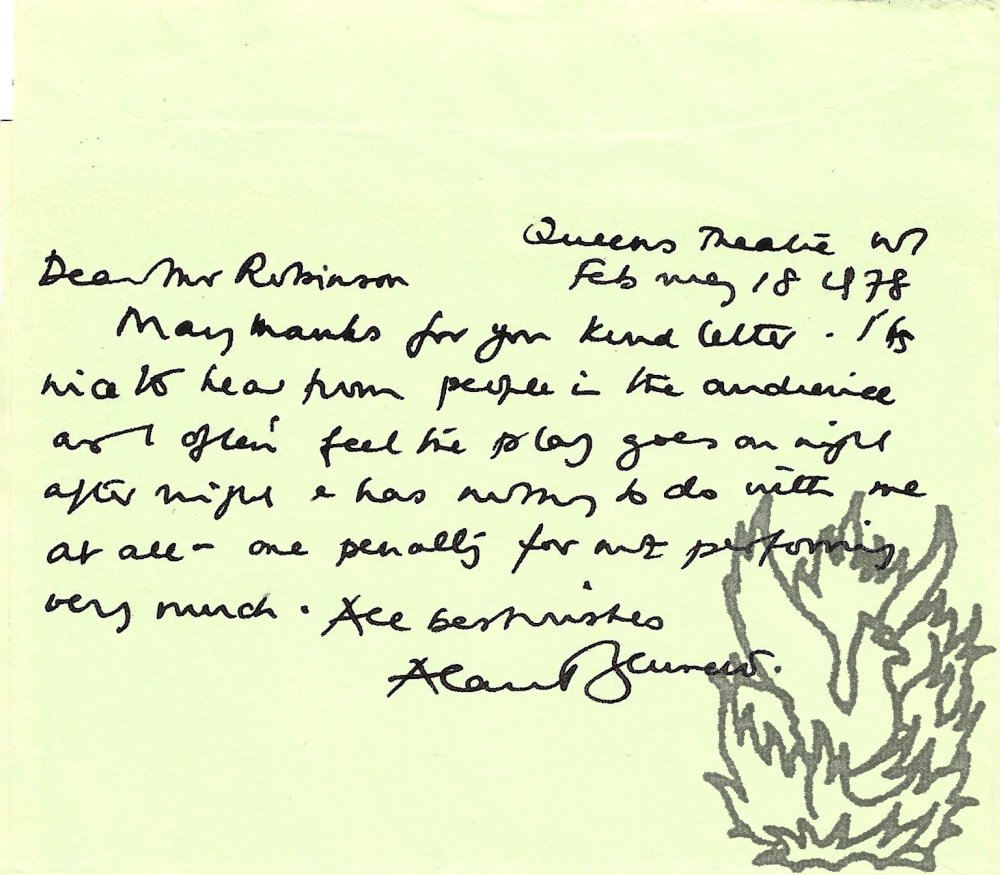 Queens Theatre W1
Feb 18 1978
Dear Mr Robinson
Many thanks for your kind letter. It's
nice to hear from people in the audience
as I often feel the play goes on night
after night & has nothing to do with me
at all - one penalty for not performing
very much. All best wishes
Alan Bennett.